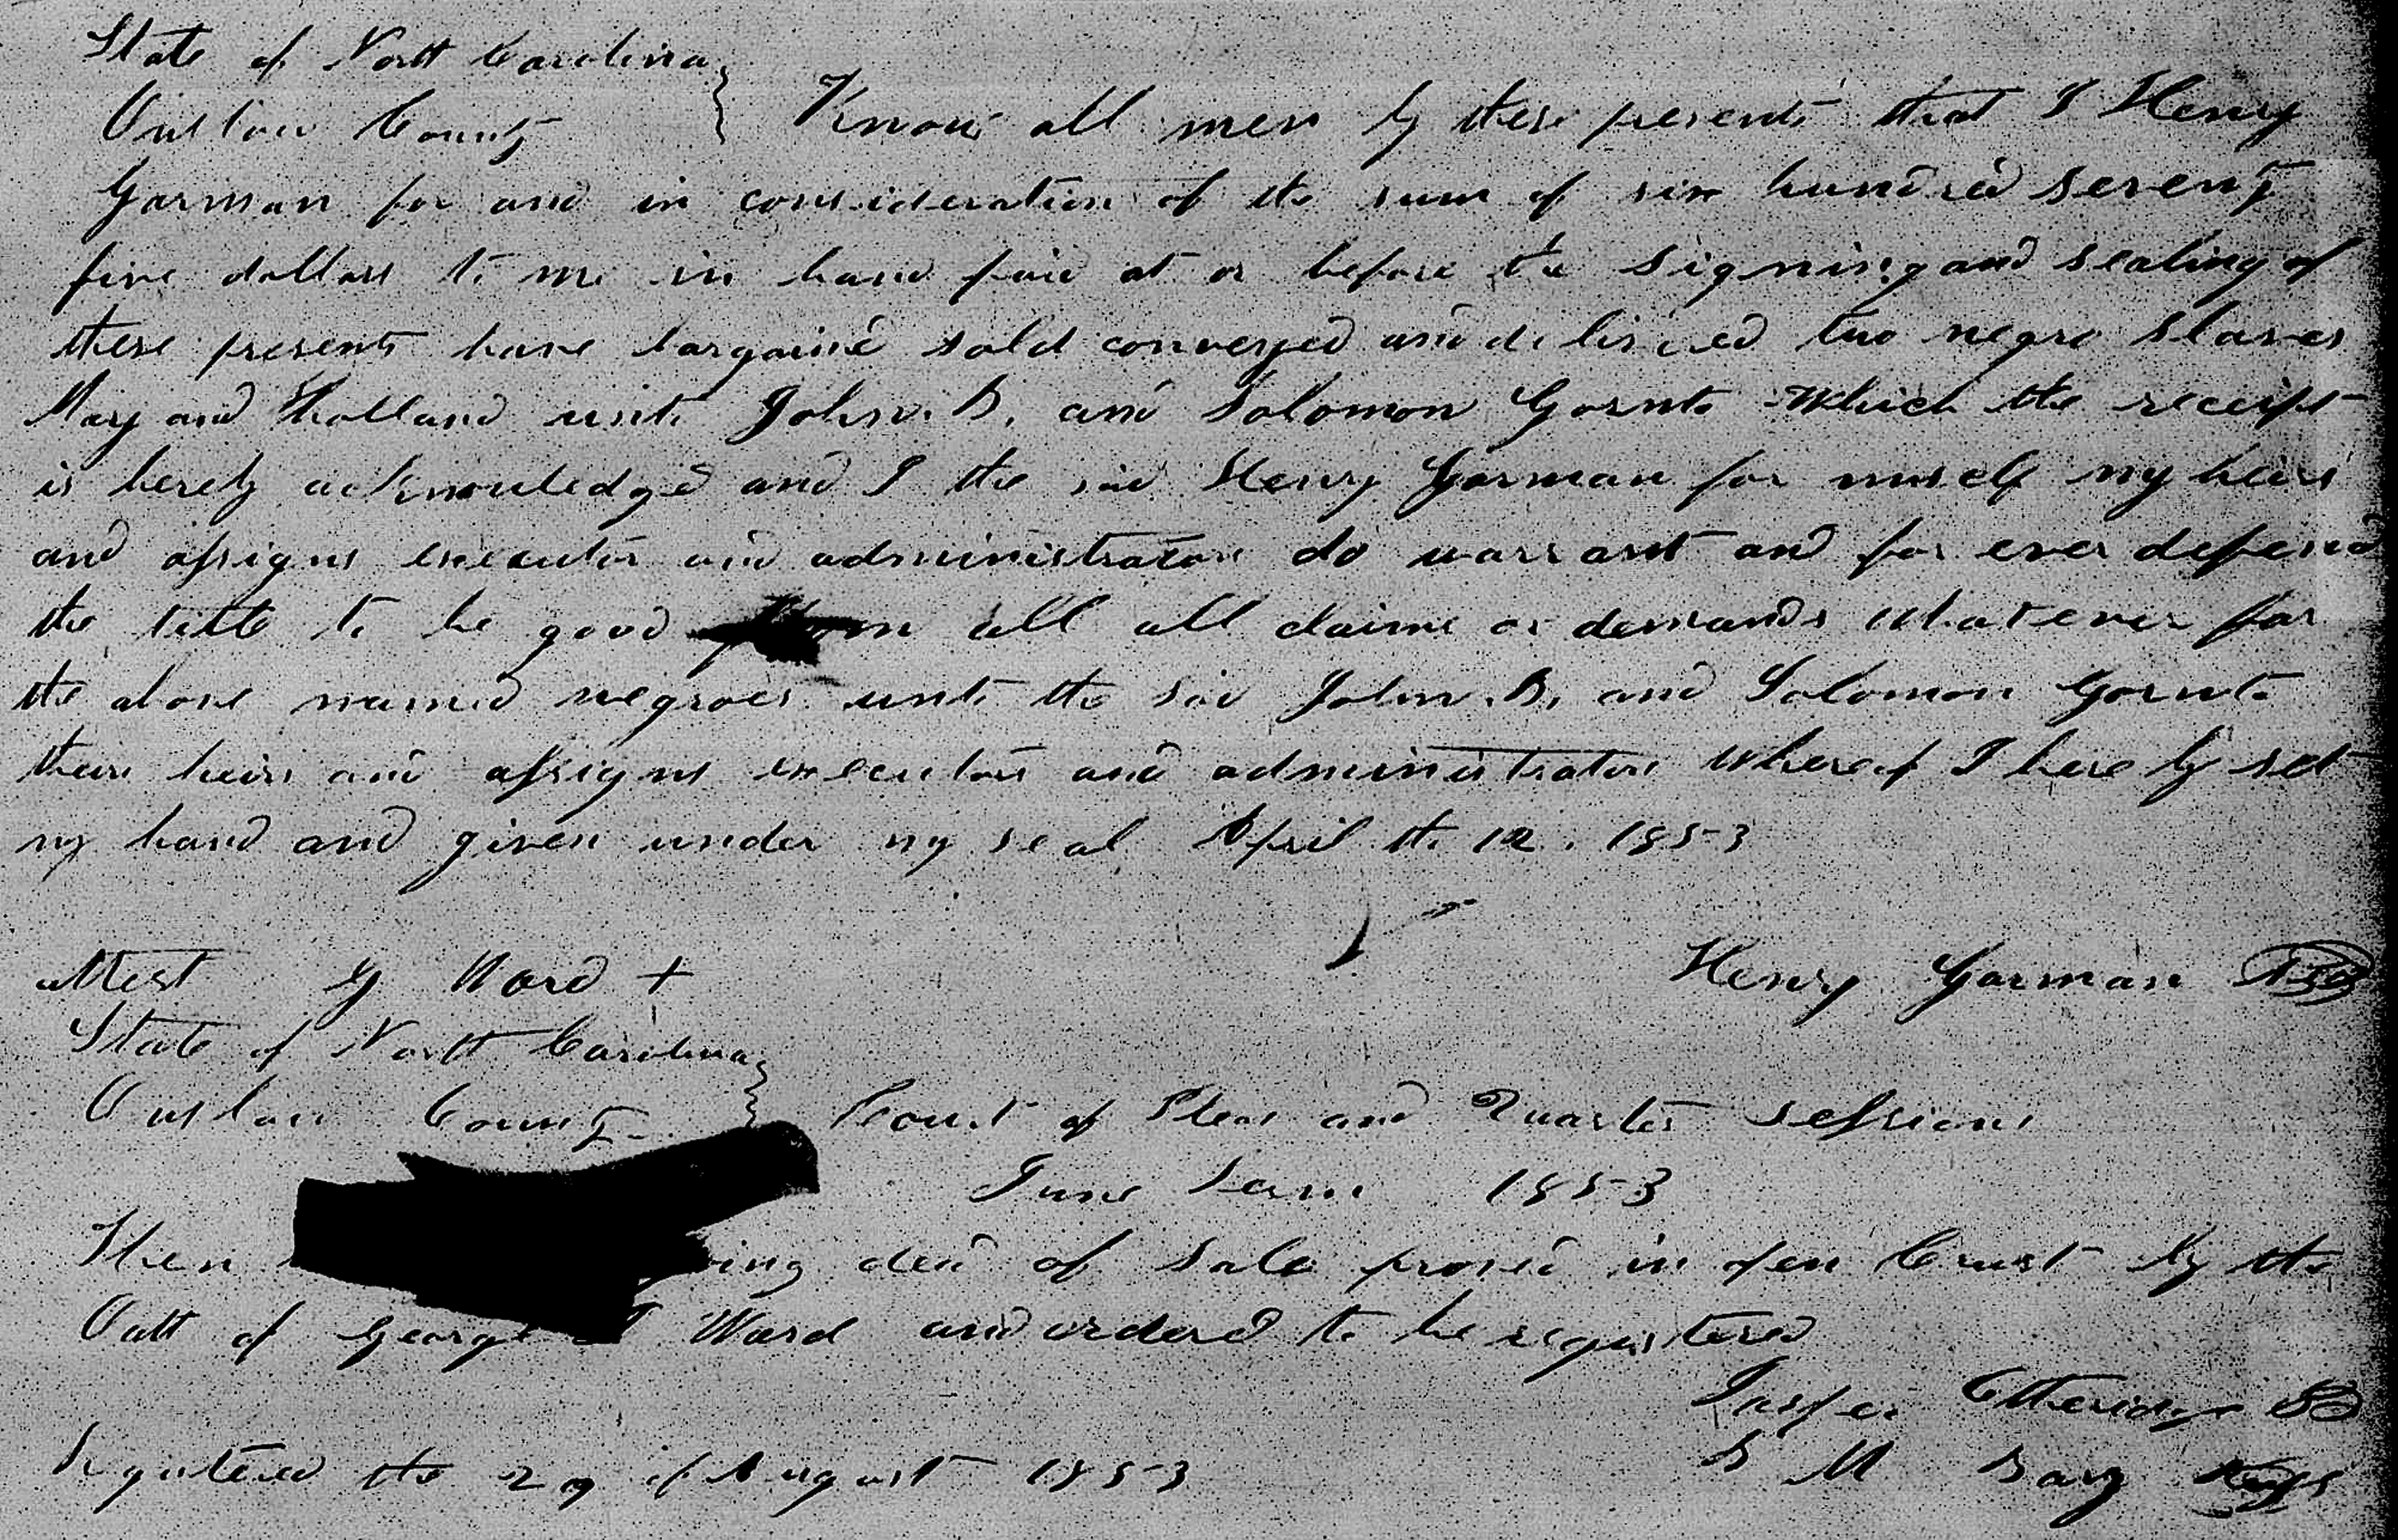 State of North Carolina
Onslow County } Know all men by these presents that I Henry
Garman for and in consideration of the sum of six hundred seventy
five dollars to me in hand paid at or before the signing and sealing of
these presents have bargained sold conveyed and delivered two negro slaves
Mary and Holland unto John B. and Solomon Gornto which the receipt
is hereby acknowledged and I the said Henry Garman for mself my heirs
and assigns executor and administrators do warrant and for ever defend
the title to be good from all all claims or demands whatever for
the above named negroes unto the said John B. and Solomon Gornto
their heirs and assigns executors and administrators whereof I here by set
my hand and given under my seal April the 12. 1853
Henry Garman
Attest G Ward +
State of North Carolina
Onslow County } Court of Pleas and Quarter sessions
June Term 1853
Then ing deed of sale proved in open Court by the
Oath of George Ward and ordered to be registered
Jasper Etheridge
Registered the 29 of August 1853